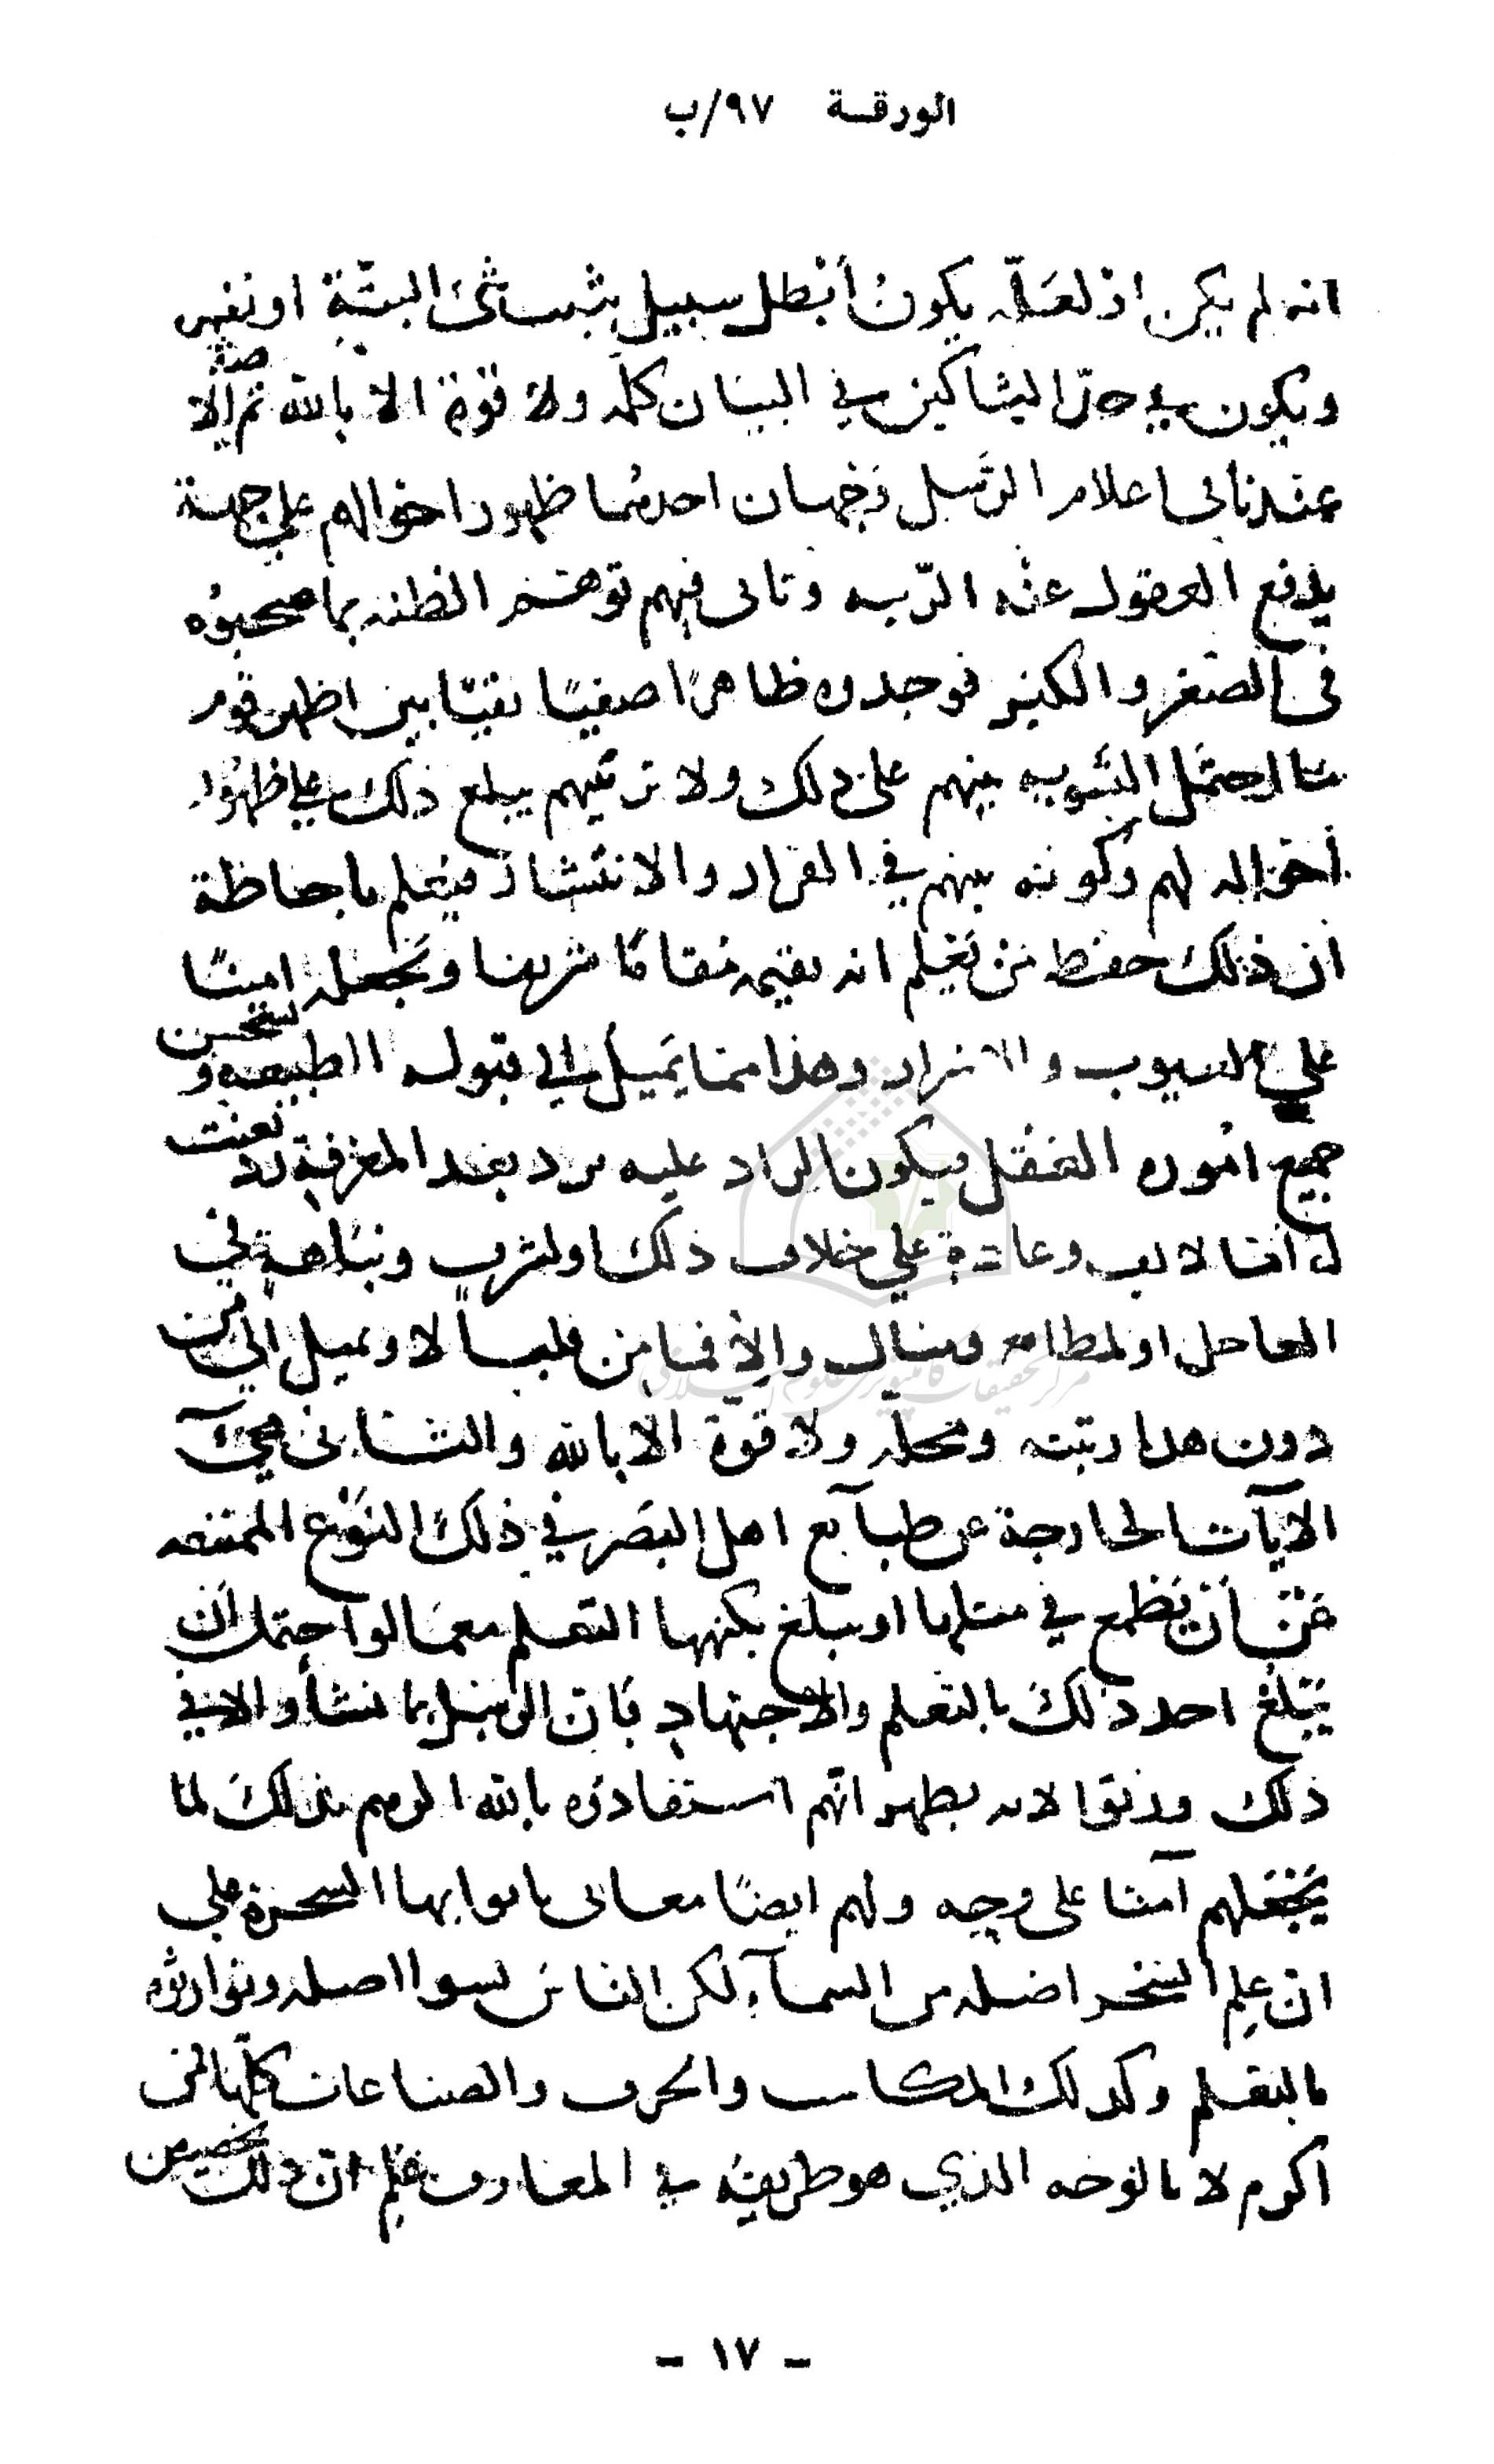 الورقة ٩٧/ب
انه لم يكن اذ لعله يكون أبطل سبيل يثبت شئ البتة او نفيه
ويكون في حد الشاكين في البيان كله ولا قوة الا بالله ثم الا صل
عندنا في اعلام الرسل وجهان احدهما ظهور احوالهم على جهة
يدفع العقول عنه الريبه وتابى فيهم توهم الظنه بما صحبوه
في الصغر والكبر فوجدوه ظاهرا صفيا نقيا بين اظهر قوم
ما احتمل التسويه بينهم على ذلك ولا تربيتهم يبلغ ذلك على ظهور
أحواله لهم وكونه بينهم في القرار والانتشار فيعلم باحاطة
ان ذلك حفظ من يعلم انه يقيمه مقاما شريفا ويجعله امينا
على الغيوب والاسرار وهذا مما يميل الى قبوله الطبيعه ويستحسن
جميع اموره العقل فيكون الراد عليه يرد بعد المعرفة رد تعنت
له اما لالف وعادة على خلاف ذلك او لشرف ونباهة في
العاجل او لمطامع ومنال والا فما من قلب الا ويميل الى من
دون هذا رتبته ومحله ولا قوة الا بالله والثاني مجئ
الآيات الخارجة عن طبائع اهل البصر في ذلك النوع الممتنعه
عن أن يطمع في مثلها او يبلغ بكنهها التعلم مع ما لو احتمل ان
يبلغ احد ذلك بالتعلم والاجتهاد فان الرسل بما نشأوا لا في
ذلك وربوا لا به يظهر انهم استفادوه بالله اكرمهم بذلك لما
يجعلهم أمنا على وحيه ولهم ايضا معاني بانوا بها السحرة على
ان علم السحر اصله من السماء لكن الناس نسوا اصله وتوارثوه
بالتعلم وكذلك المكاسب والحرف والصناعات كلها فمن
اكرم لا بالوجه الذي هو طريقه في المعارف علم ان ذلك تخصيص من
- ١٧ -